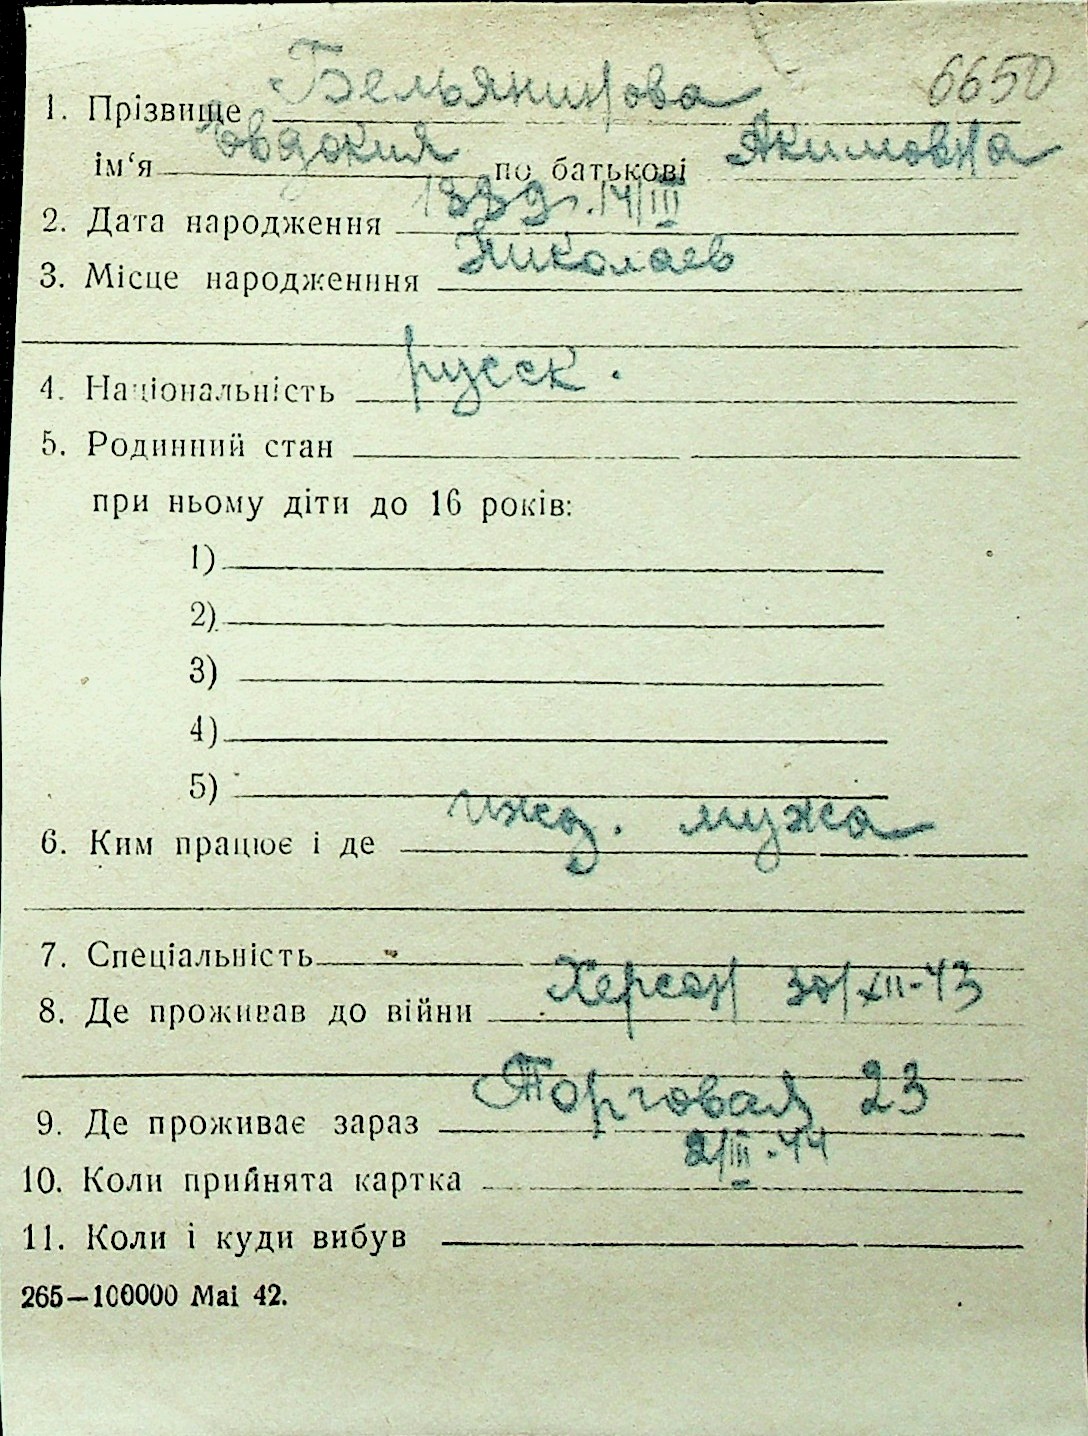 6650
1. Прізвище Бельянинова
ім‘я Евдокия по батькові Якимовна
2. Дата народження 1889. 14/III
3. Місце народженння Николаев
4. Національність русск.
5. Родинний стан
при ньому діти до 16 років:
1)
2)
3)
4)
5)
6. Ким працює і де ижд. мужа
7. Спеціальність
8. Де проживав до війни Херсон 30/XII-43
9. Де проживає зараз Торговая 23
10. Коли прийнята картка 2/III-44
11. Коли і куди вибув
265—100000 Mai 42.